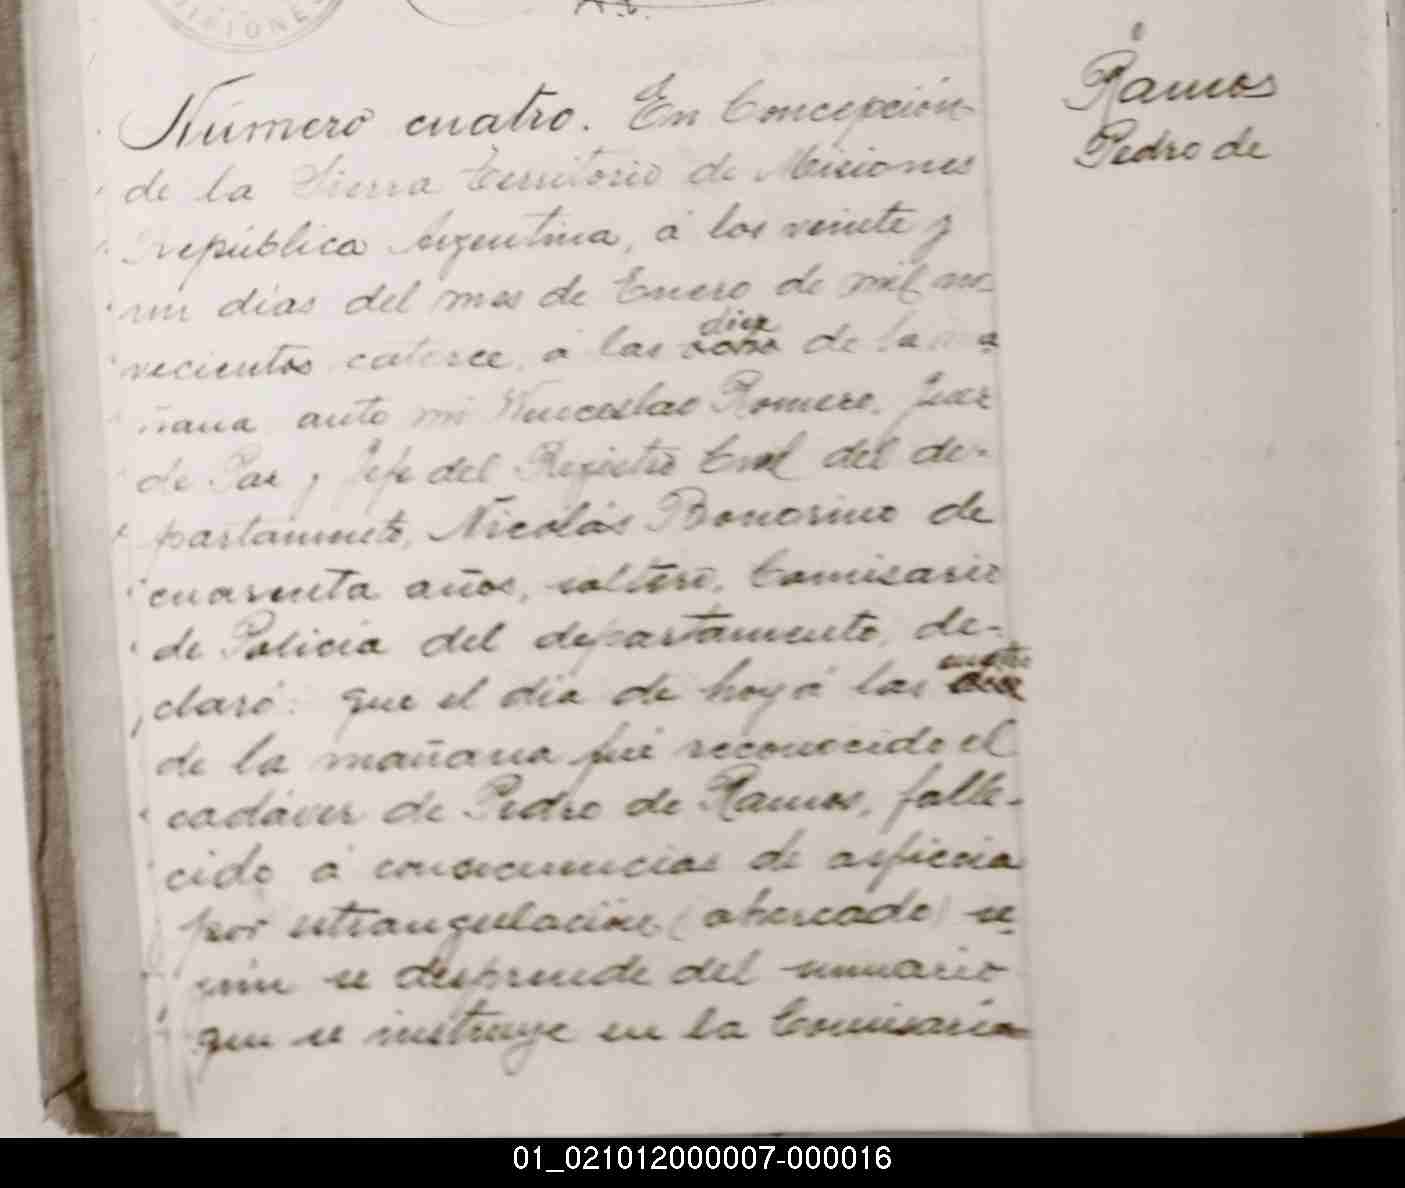 Número cuatro. En Concepción
de la Sierra territorio de Misiones
república Argentina, á los veinte y
un días del mes de Enero de mil no-
vecientos catorce, á las diez de la ma-
ñana ante mi Wenceslao Romero, Juez
de Paz y Jefe del Registro Civil del de-
partamento, Nicolás Bonorino de
cuarenta años, soltero, Comisario
de Policía del departamento, de-
claró: que el día de hoy á las cuatro
de la mañana fué reconocido el
cadáver de Pedro de Ramos, falle-
cido á consecuencias de asficcia
por estrangulación (ahorcado) se-
gún se desprende del sumario
que se instruye en la Comisaría
Ramos
Pedro de
01_021012000007-000016